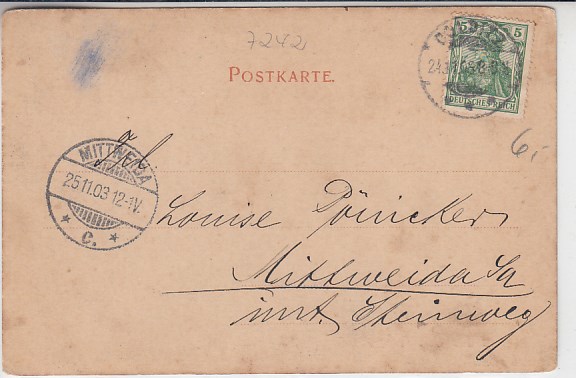 7242
POSTKARTE.
5 5
DEUTSCHES REICH
6,-
MITTWEIDA
25.11.03 12-1V.
* c. *
Louise Pönicker
Mittweida Sa
unt. Steinweg